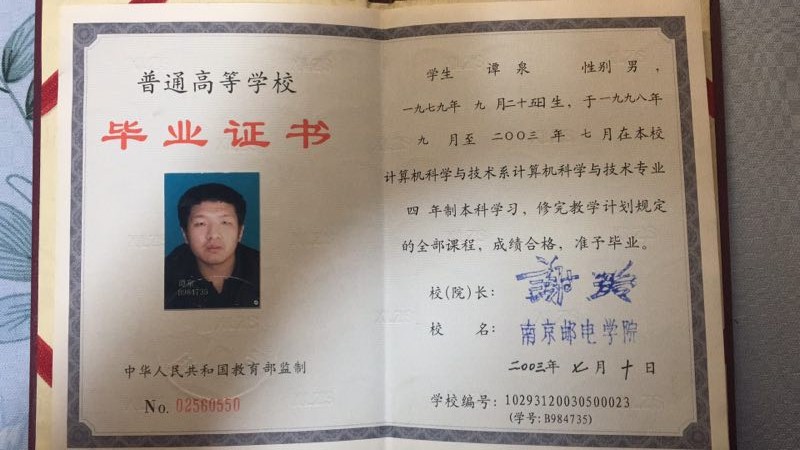 普通高等学校
毕业证书
谭泉
B984735
中华人民共和国教育部监制
No. 02560550
学生 谭 泉 性别 男,
一九七九年 九 月二十五日生,于一九九八年
九 月至 二〇〇三 年 七 月在本校
计算机科学与技术系计算机科学与技术专业
四 年制本科学习,修完教学计划规定
的全部课程,成绩合格,准予毕业。
校(院)长:
校 名: 南京邮电学院
二〇〇三年 七 月 十 日
学校编号: 10293120030500023
(学号: B984735)